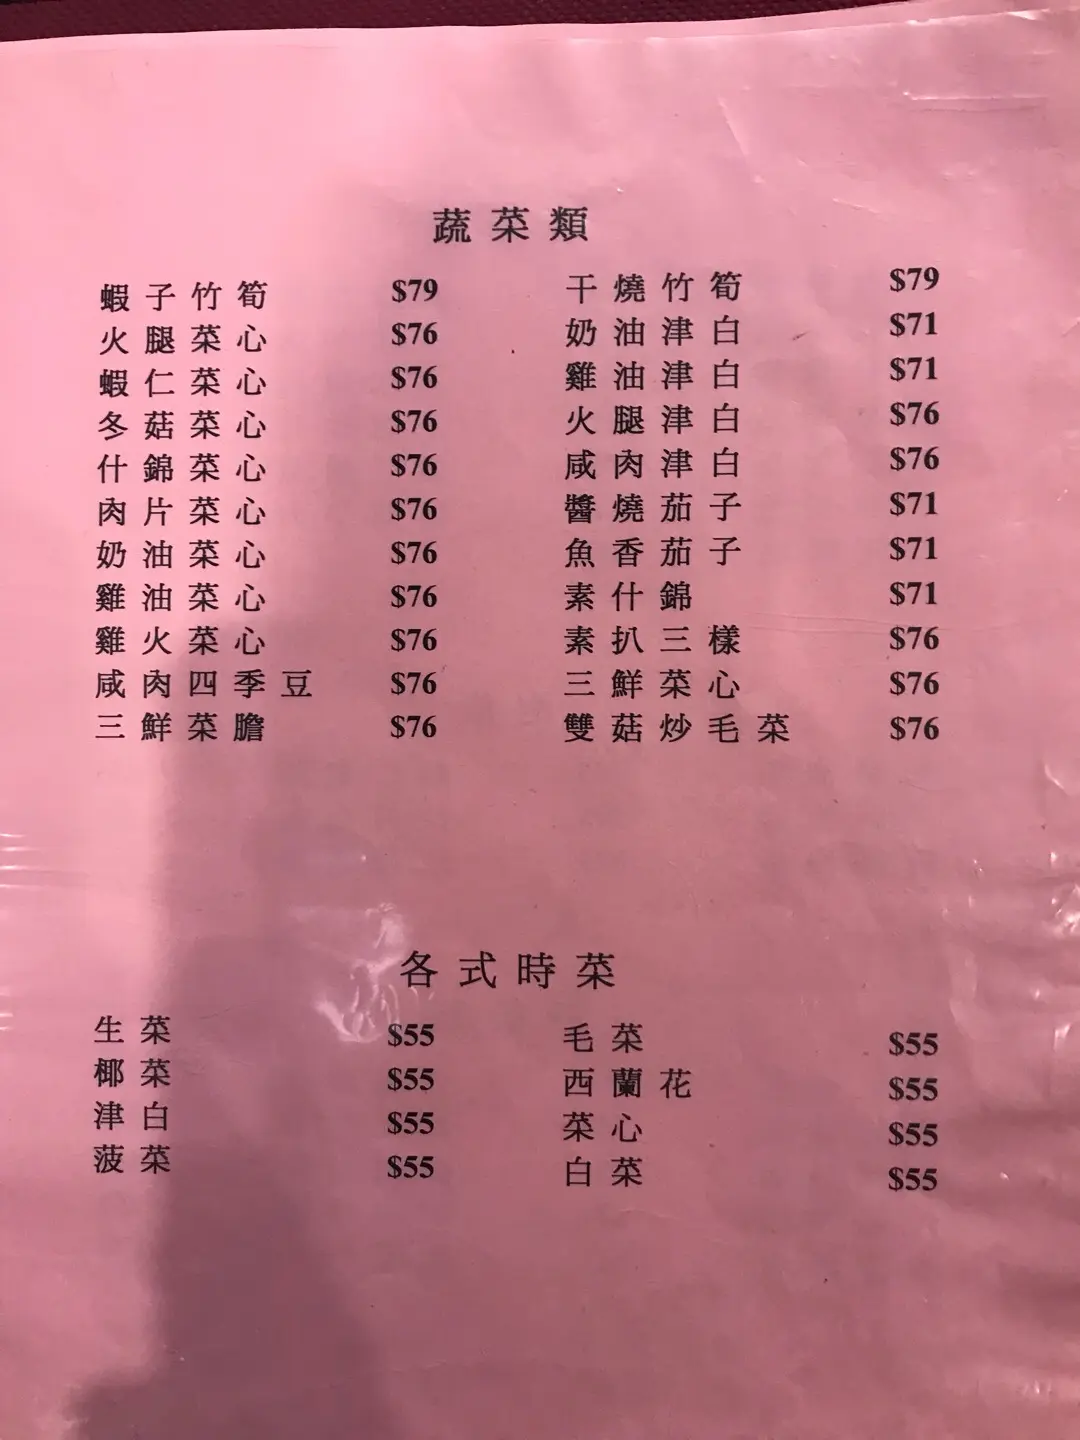 蔬菜類
蝦子竹筍 $79 干燒竹筍 $79
火腿菜心 $76 奶油津白 $71
蝦仁菜心 $76 雞油津白 $71
冬菇菜心 $76 火腿津白 $76
什錦菜心 $76 咸肉津白 $76
肉片菜心 $76 醬燒茄子 $71
奶油菜心 $76 魚香茄子 $71
雞油菜心 $76 素什錦 $71
雞火菜心 $76 素扒三樣 $76
咸肉四季豆 $76 三鮮菜心 $76
三鮮菜膽 $76 雙菇炒毛菜 $76
各式時菜
生菜 $55 毛菜 $55
椰菜 $55 西蘭花 $55
津白 $55 菜心 $55
菠菜 $55 白菜 $55